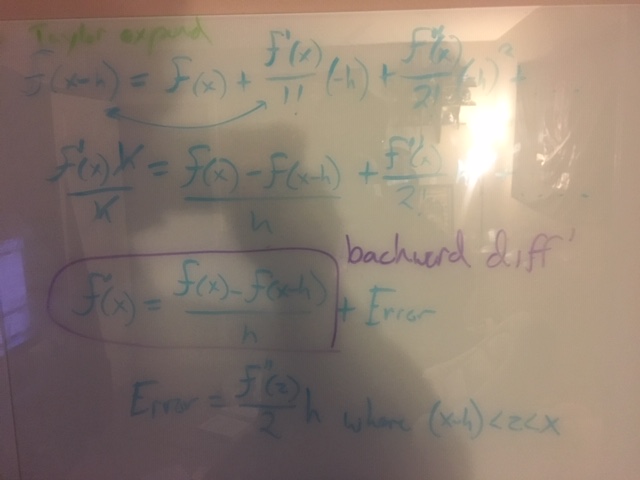 Taylor expand
f(x-h) = f(x) + f'(x)/1! (-h) + f''(x)/2! (-h)² + ...
f'(x)h/h = f(x) - f(x-h)/h + f''(x)/2!
backward diff'
f'(x) = f(x) - f(x-h)/h + Error
Error = f''(z)/2 h where (x-h)<z<x